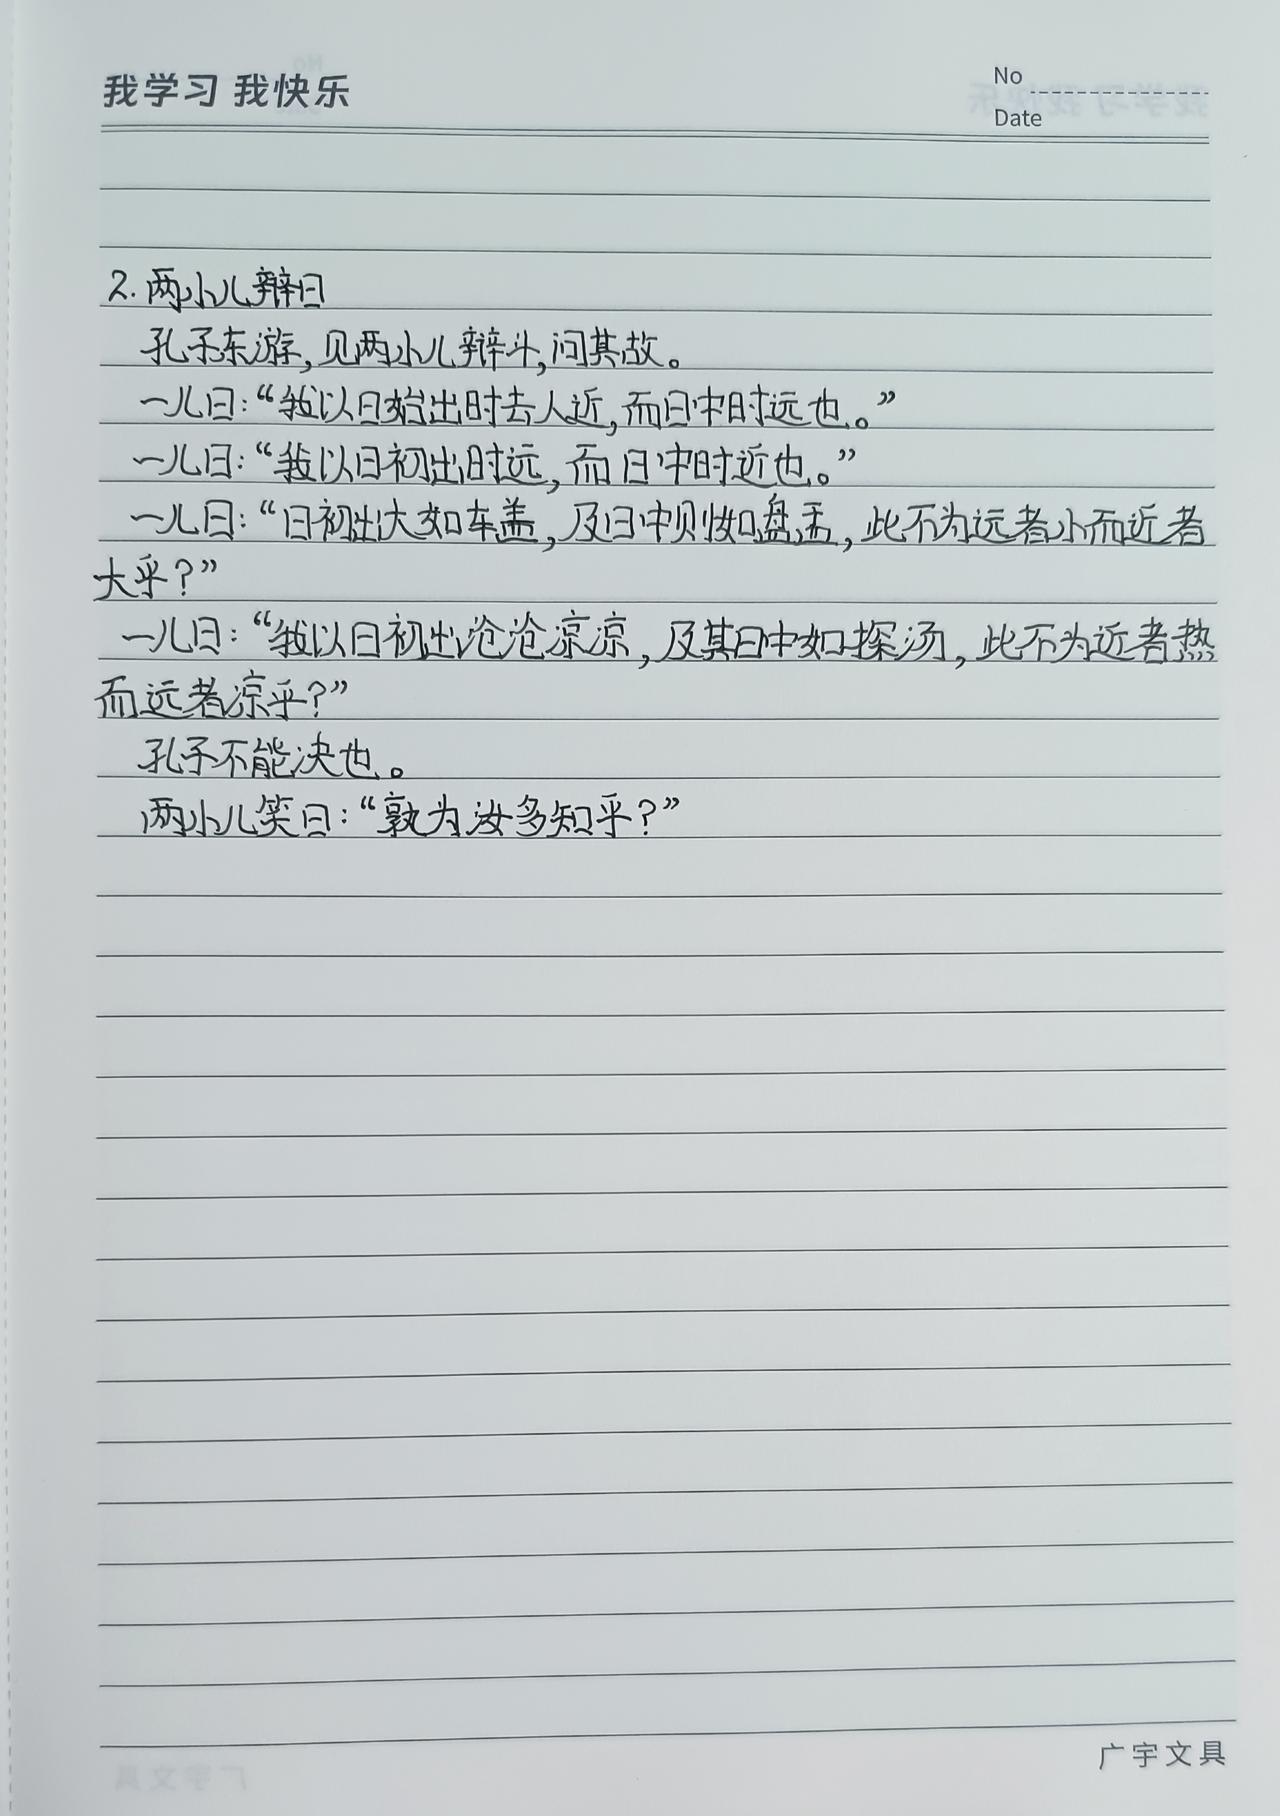 我学习 我快乐
No
Date
2. 两小儿辩日
孔子东游,见两小儿辩斗,问其故。
一儿曰:“我以日始出时去人近,而日中时远也。”
一儿曰:“我以日初出时远,而日中时近也。”
一儿曰:“日初出大如车盖,及日中则如盘盂,此不为远者小而近者
大乎?”
一儿曰:“我以日初出沧沧凉凉,及其日中如探汤,此不为近者热
而远者凉乎?”
孔子不能决也。
两小儿笑曰:“孰为汝多知乎?”
广宇文具